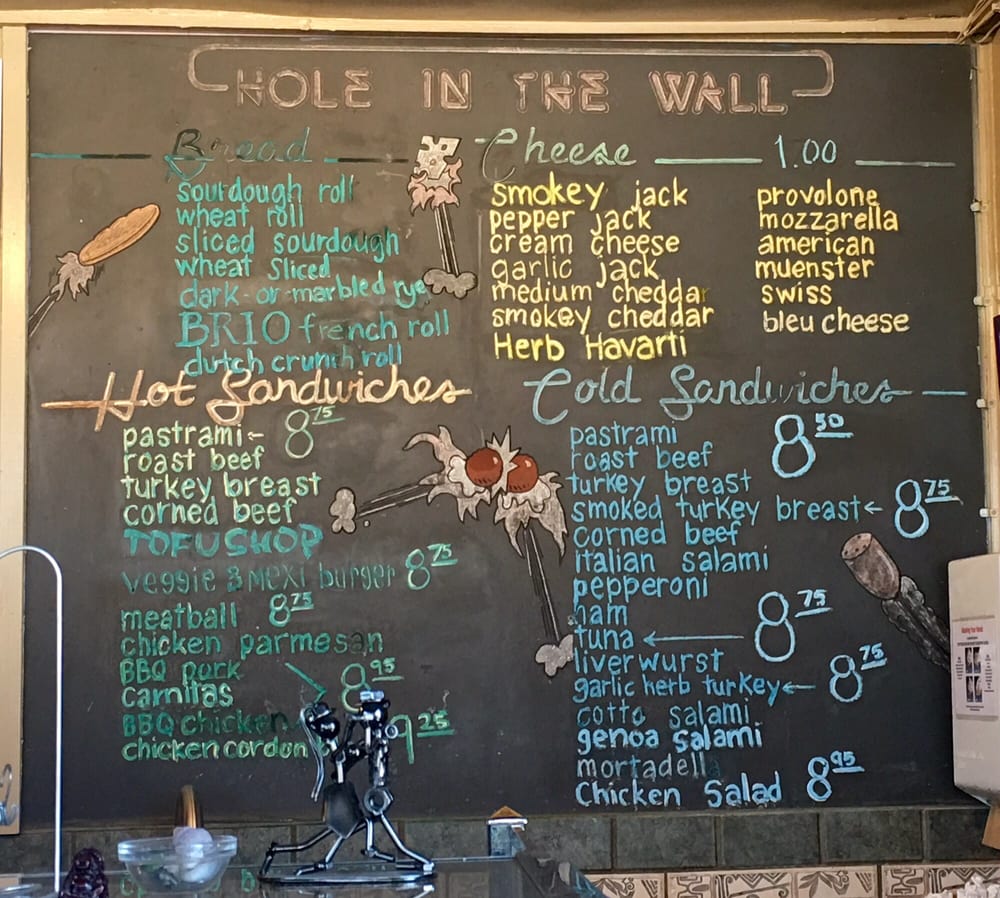 HOLE IN THE WALL
Bread
sourdough roll
wheat roll
sliced sourdough
wheat Sliced
dark-or-marbled rye
BRIO french roll
dutch crunch roll
Cheese 1.00
smokey jack
pepper jack
cream cheese
garlic jack
medium cheddar
smokey cheddar
Herb Havarti
provolone
mozzarella
american
muenster
swiss
bleu cheese
Hot Sandwiches
pastrami 8 75
roast beef
turkey breast
corned beef
TOFU SHOP
veggie & mexi burger 8 75
meatball 8 75
chicken parmesan
BBQ pork 8 95
carnitas
BBQ chicken 9 25
chicken cordon
Cold Sandwiches
pastrami 8 50
roast beef
turkey breast
smoked turkey breast 8 75
corned beef
italian salami
pepperoni
ham
tuna 8 75
liverwurst
garlic herb turkey 8 75
cotto salami
genoa salami
mortadella
Chicken Salad 8 95